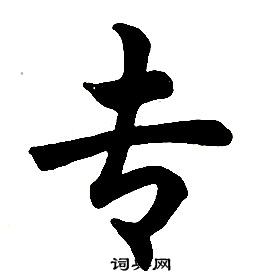 专
词典网